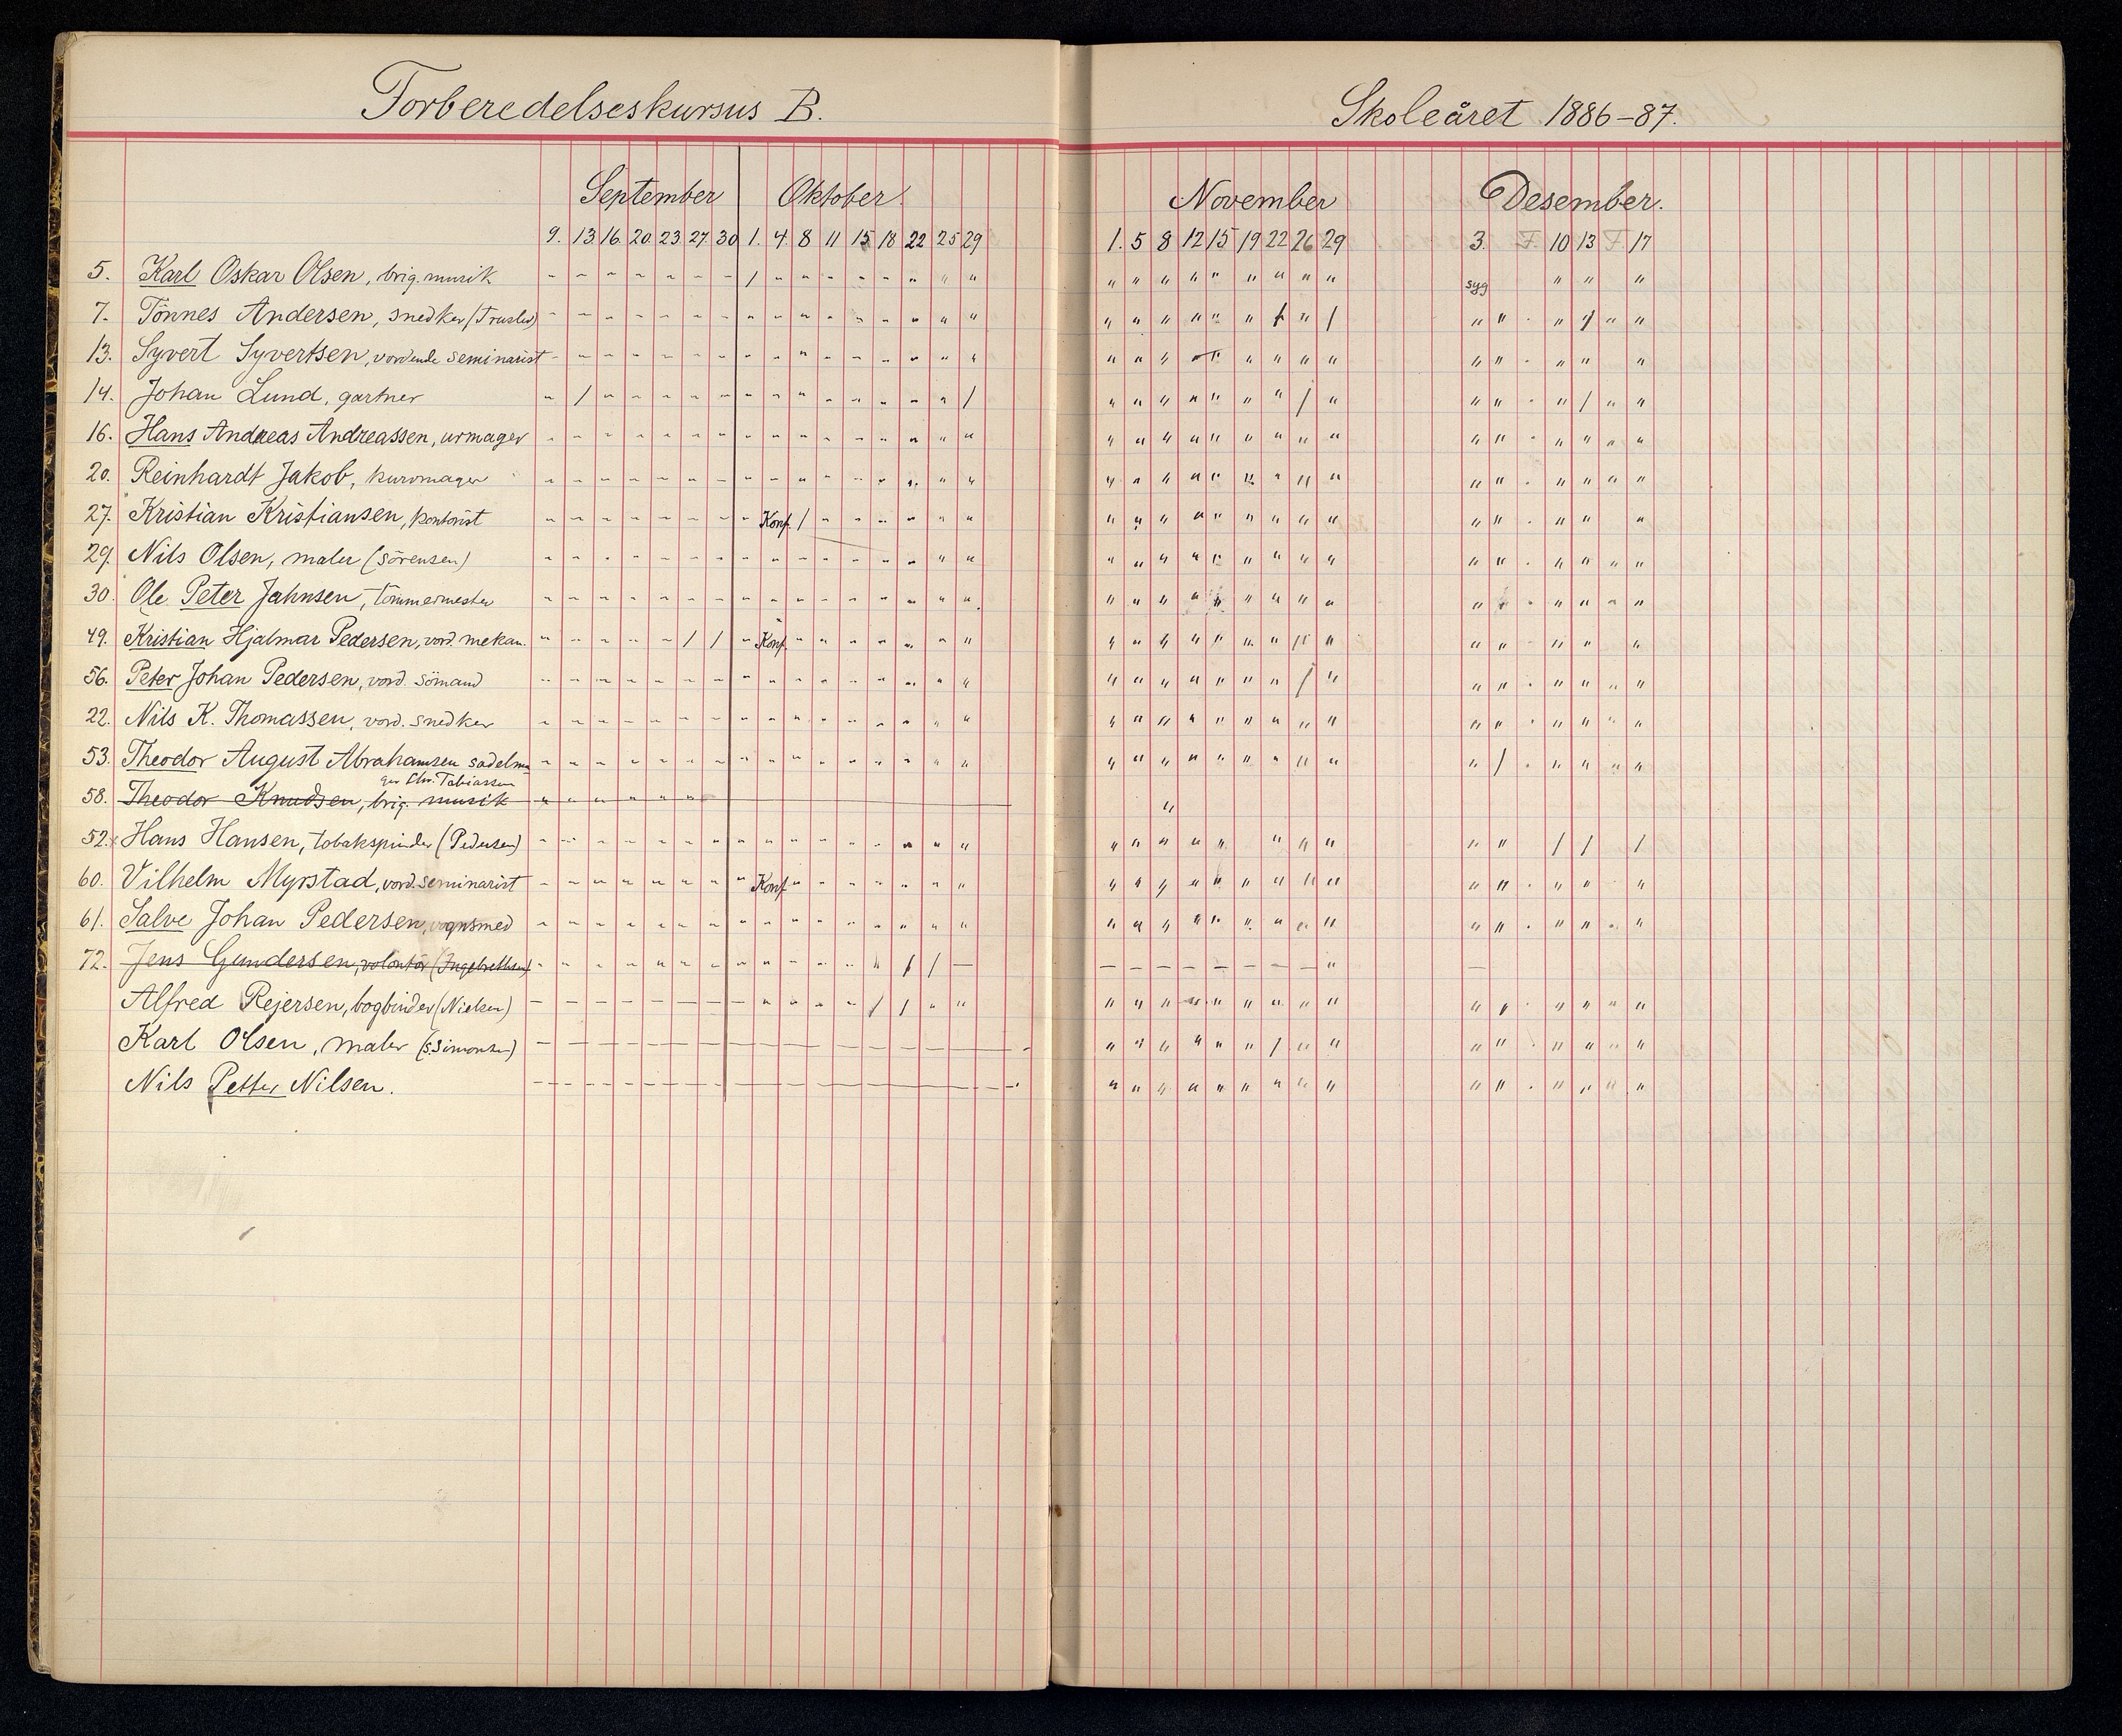 Forberedelseskursus B.
Skoleåret 1886-87.
September Oktober. November Desember.
9. 13 16 20 23 27 30 1. 4 8 11 15 18 22 25 29 1. 5 8 12 15 19 22 26 29 3. F. 10 13 F. 17
5. Karl Oskar Olsen, brig. musik syg
7. Tönnes Andersen, snedker
13. Syvert Syvertsen, vordende seminarist
14. Johan Lund, gartner
16. Hans Andreas Andreassen, urmager
20. Reinhardt Jakob, kurvmager
27. Kristian Kristiansen, kontorist Konf.
29. Nils Olsen, maler (Sörensen)
30. Ole Peter Jahnsen, tömmermester
49. Kristian Hjalmar Pedersen, vord. mekan. Konf.
56. Peter Johan Pedersen, vord. sömand
22. Nils K. Thomassen, vord. snedker
53. Theodor August Abrahamsen sadelm
Chr. Tobiassen
58. Theodor Knudsen, brig. musik
52. Hans Hansen, tobakspinder (Pedersen)
60. Vilhelm Myrstad, vord. seminarist Konf
61. Salve Johan Pedersen, vognsmed
72. Jens Gundersen, volontör (Ingebrethsen)
Alfred Rejersen, bogbinder (Nielsen)
Karl Olsen, maler (S. Simonsen)
Nils Petter Nilsen.